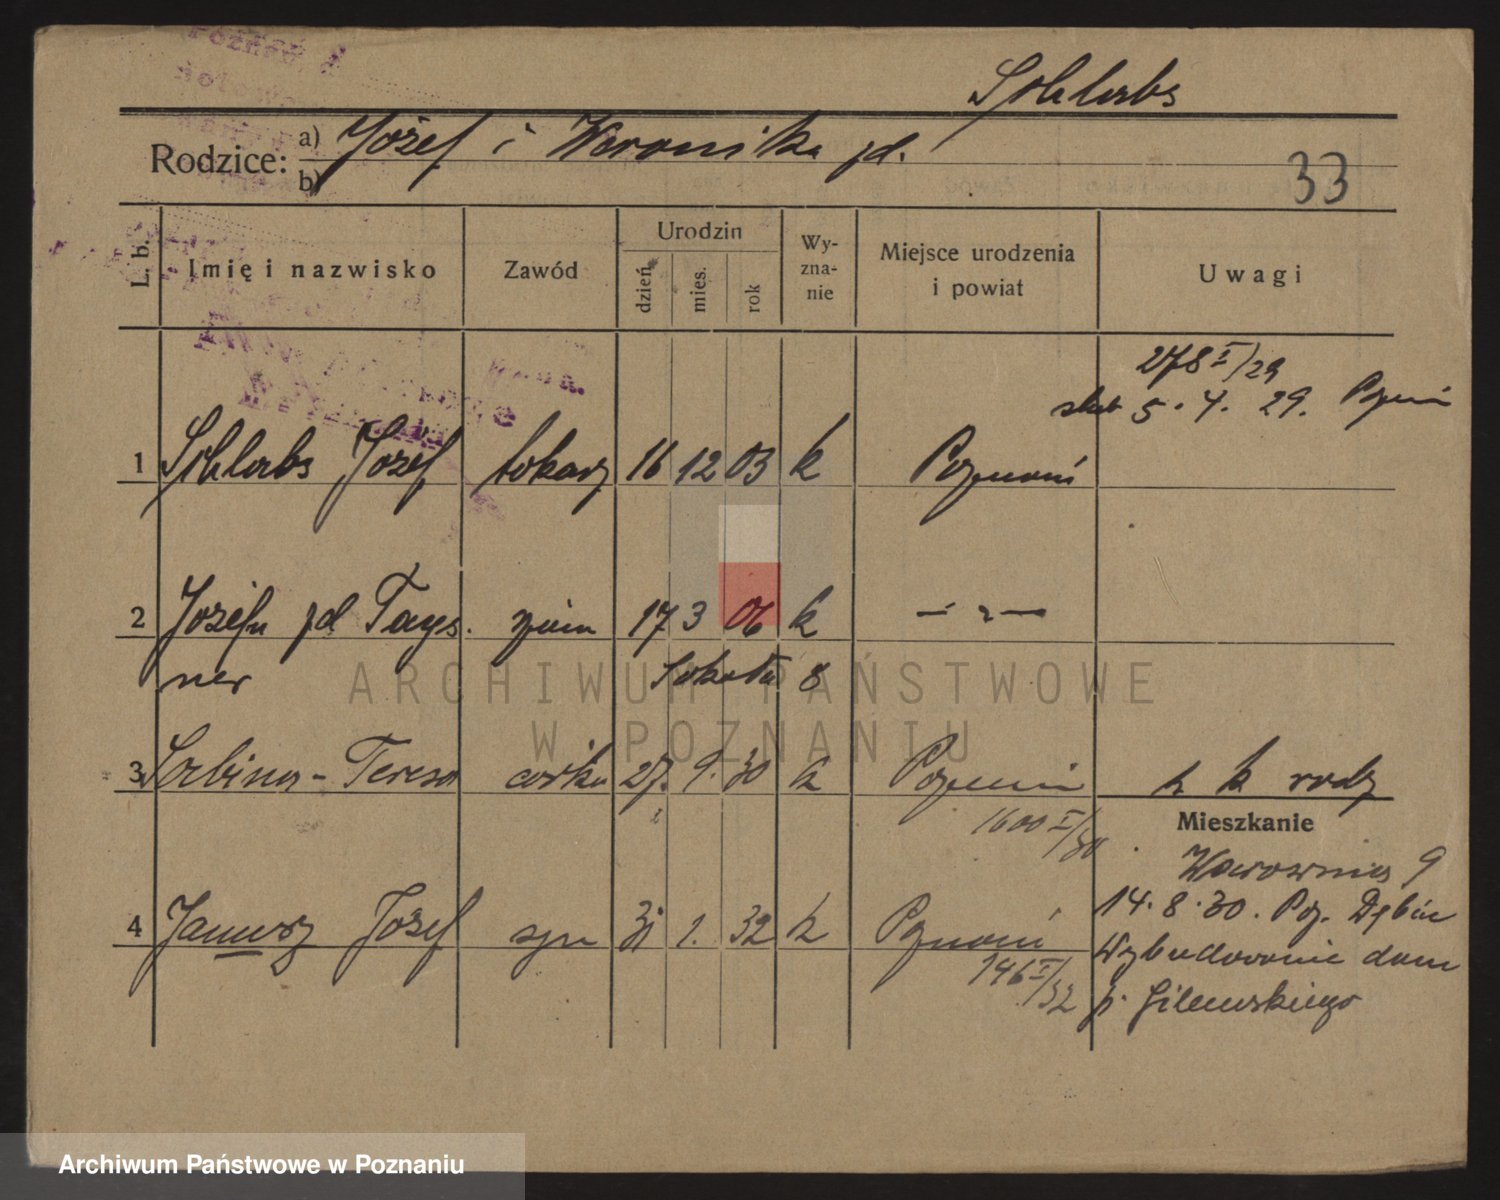 Schlabs
Rodzice: a) Józef i Weronika zd.
b)
33
L. b. Imię i nazwisko Zawód Urodzin dzień mies. rok Wy-zna-nie Miejsce urodzenia i powiat Uwagi
278 I/29
ślub 5. 4. 29. Poznań
1 Schlabs Józef tokarz 16 12 03 k Poznań
2 Józefa zd Tays. żona 17 3 06 k — " —
ner 8
ARCHIWUM PAŃSTWOWE
W POZNANIU
3 Teresa córka 27. 9. 30 k Poznań k rodz
1600 I/30
Mieszkanie
9
4 Janusz Józef syn 31 1. 32 k Poznań
146 I/32
14. 8. 30. Poz. Dębiec
Wybudowanie dom
p. Gilewskiego
Archiwum Państwowe w Poznaniu